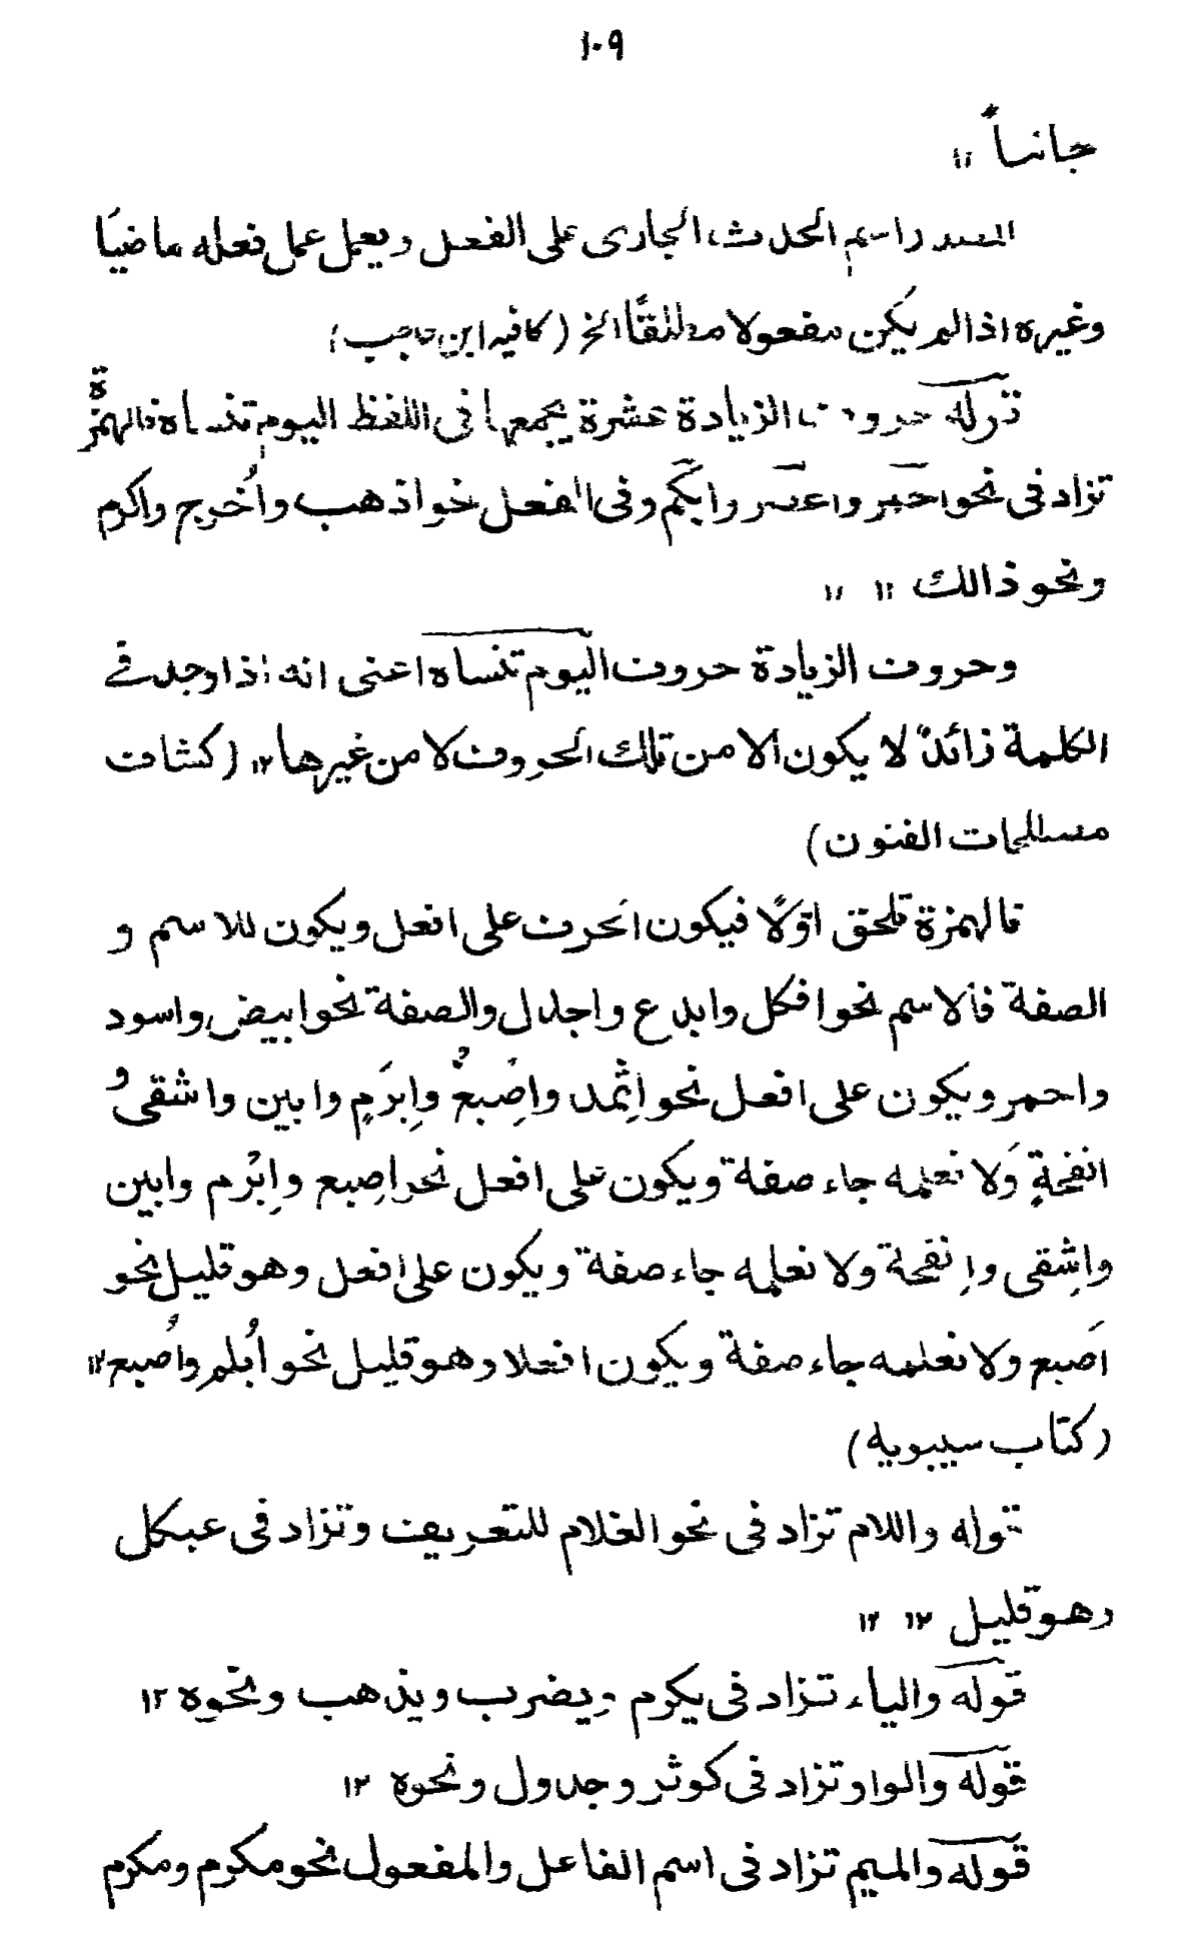 ١٠٩
جانباً ١٢
المصدر اسم الحدث الجاری علی الفعل ويعمل عمل فعله ماضيًا
وغيره اذا لم يكن مفعولا مطلقًا الخ (كافيه ابن حاجب)
قوله حروف الزيادة عشرة يجمعها فی اللفظ اليوم تنساه فالهمزة
تزاد فی نحو احمر واعسر وابكم وفی الفعل نحو اذهب واُخرج واكرم
ونحو ذالك ١٢ ١٢
وحروف الزيادة حروف اليوم تنساه اعنی انه اذا وجد فی
الكلمة زائدٌ لا يكون الا من تلك الحروف لا من غيرها ١٢ (كشاف
مصطلحات الفنون)
فالهمزة تلحق اوّلاً فيكون الحرف علی افعل ويكون للاسم و
الصفة فالاسم نحو افكل وايدع واجدل والصفة نحو ابيض واسود
واحمر ويكون علی افعل نحو اِثْمد واِصْبعٌ واِبرَمٍ وابين واشقیٰ وُ
انفحةٍ وَلا نعلمه جاء صفة ويكون علی افعل نحو اصِبع واِبْرم وابين
واشِقی واِنفحة ولا نعلمه جاء صفة ويكون علی افعل وهو قليل نحو
اَصبع ولا نعلمه جاء صفة ويكون افعلا وهو قليل نحو اُبلُم واُصبُع ١٢
(كتاب سيبويه)
قوله واللام تزاد فی نحو الغلام للتعريف وتزاد فی عبدكل
وهو قليل ١٢ ١٢
قوله والياء تزاد فی يكرم ويضرب ويذهب ونحوه ١٢
قوله والواو تزاد فی كوثر وجدول ونحوه ١٢
قوله والميم تزاد فی اسم الفاعل والمفعول نحو مكرم ومكرم